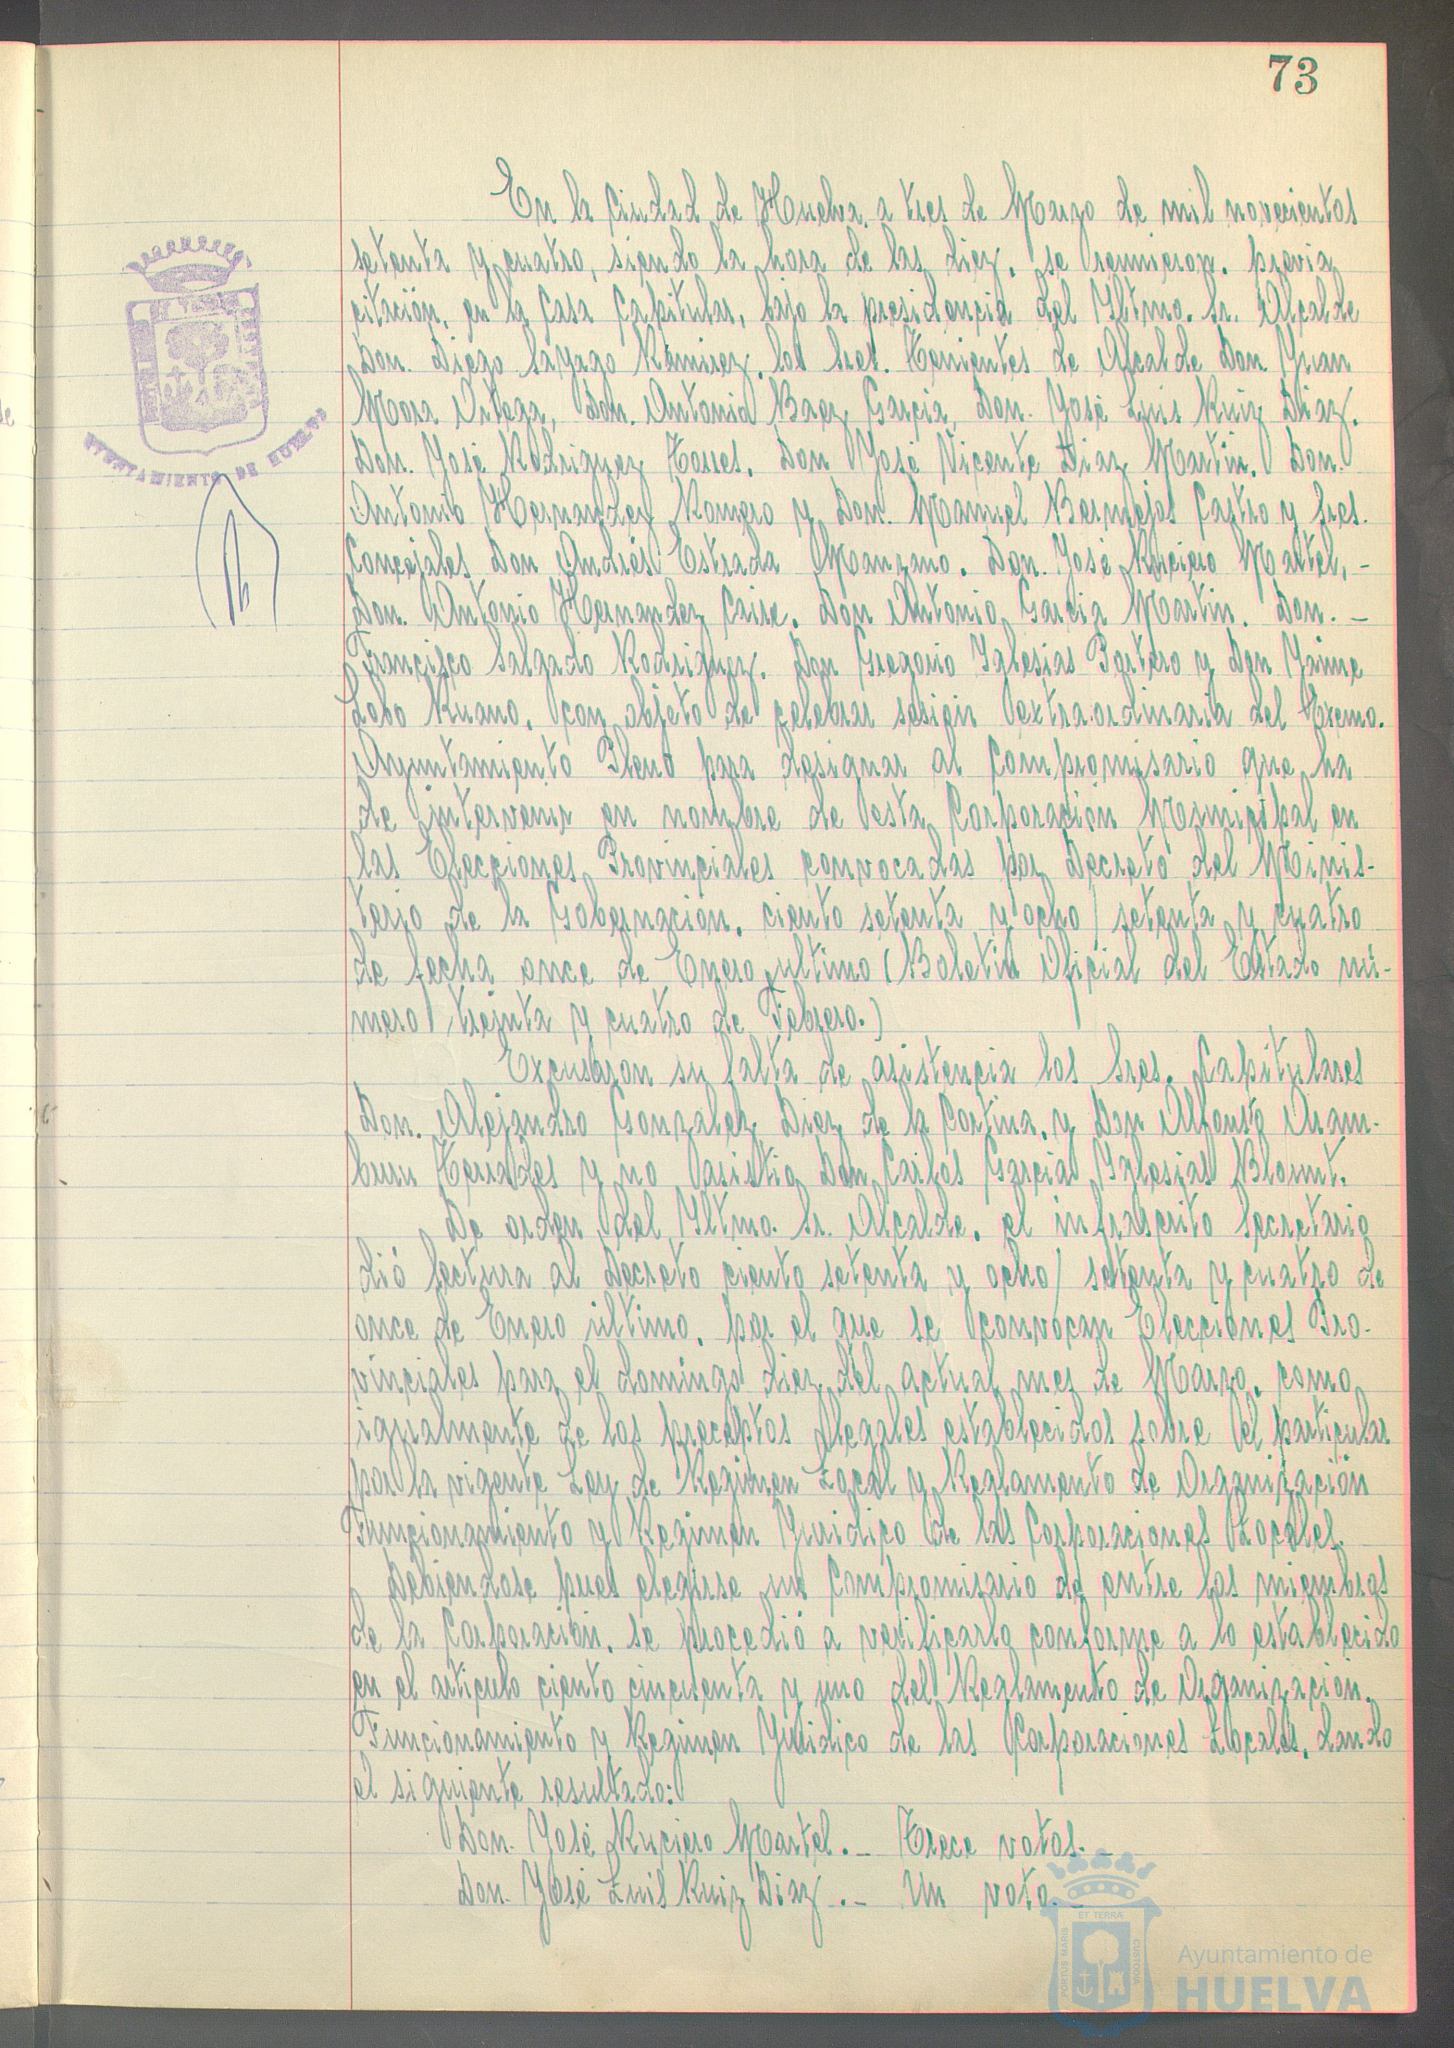 73
En la Ciudad de Huelva, a tres de Marzo de mil novecientos
setenta y cuatro, siendo la hora de las diez, se reunieron, previa
citación, en la Casa Capitular, bajo la presidencia del Iltmo. Sr. Alcalde
Don. Diego Sayago Ramirez, los Sres. Tenientes de Alcalde Don Juan
Mora Ortega, Don. Antonio Baez Garcia, Don. José Luis Ruiz Diaz,
Don. José Rodriguez Torres, Don José Vicente Diaz Martin, Don.
Antonio Hernandez Romero y Don. Manuel Bermejos Castro y Sres.
Concejales Don Andrés Estrada Manzano, Don. José Ruciero Martel, -
Don. Antonio Hernandez Caire, Don Antonio Garcia Martin, Don. -
Francisco Salgado Rodriguez, Don Gregorio Iglesias Portero y Don Jaime
Lobo Ruano, con objeto de celebrar sesión extraordinaria del Excmo.
Ayuntamiento Pleno para designar al Compromisario que ha
de intervenir en nombre de esta Corporación Municipal en
las Elecciones Provinciales convocadas por Decreto del Minis-
terio de la Gobernación, ciento setenta y ocho/ setenta y cuatro
de fecha once de Enero ultimo (Boletin Oficial del Estado nú-
mero treinta y cuatro de Febrero.)
Excusaron su falta de asistencia los Sres. Capitulares
Don. Alejandro Gonzalez Diez de la Cortina, y Don Alfonso Aram-
buru Terrades y no asistio Don Carlos Garcia Iglesias Blount.
De orden del Iltmo. Sr. Alcalde, el infrascrito Secretario
dió lectura al Decreto ciento setenta y ocho/ setenta y cuatro de
once de Enero ultimo, por el que se convocan Elecciones Pro-
vinciales para el domingo diez del actual mes de Marzo, como
igualmente de los preceptos legales establecidos sobre el particular
por la vigente Ley de Regimen Local y Reglamento de Organización
Funcionamiento y Regimen Juridico de las Corporaciones Locales.
Debiendose pues elegirse un Compromisario de entre los miembros
de la Corporación, se procedió a verificarlo conforme a lo establecido
en el articulo ciento cincuenta y uno del Reglamento de Organización,
Funcionamiento y Regimen Juridico de las Corporaciones Locales, dando
el siguiente resultado:
Don. José Ruciero Martel.- Trece votos.-
Don. José Luis Ruiz Diaz.- Un voto.-
AYUNTAMIENTO DE HUELVA
PORTUS MARIS ET TERRÆ CUSTODIA
Ayuntamiento de
HUELVA